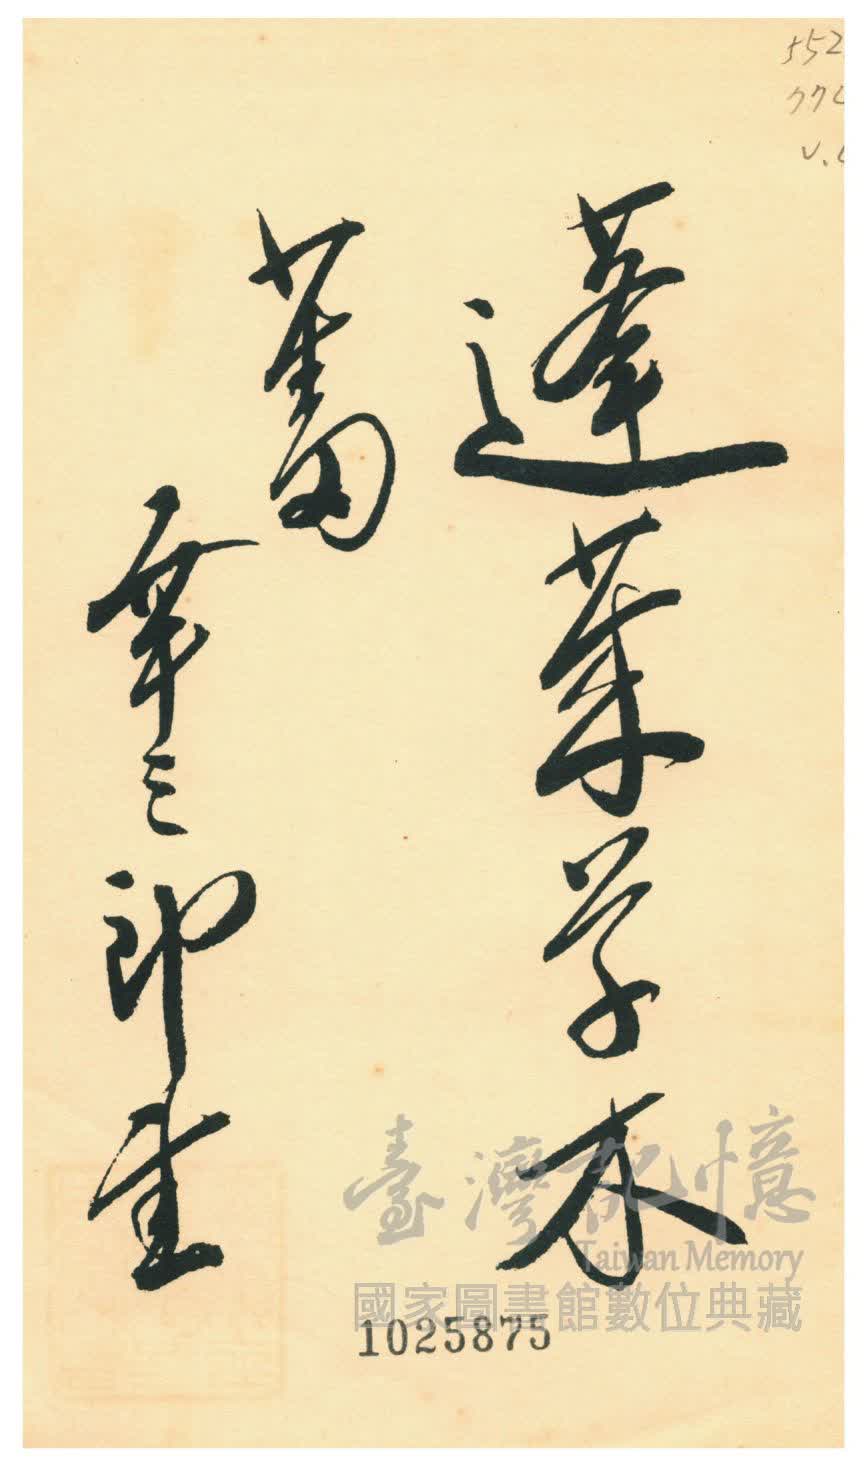 552
77
V.
蓬萊草木
蕃
三郎
臺灣記憶
Taiwan Memory
國家圖書館數位典藏
1025875